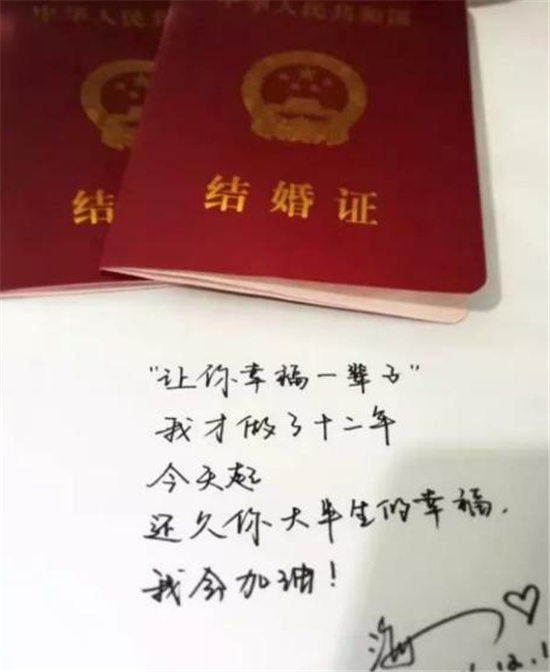 中华人民共
结
中华人民共和国
结婚证
"让你幸福一辈子"
我才做了十二年
今天起
还久你大半生的幸福.
我会加油!